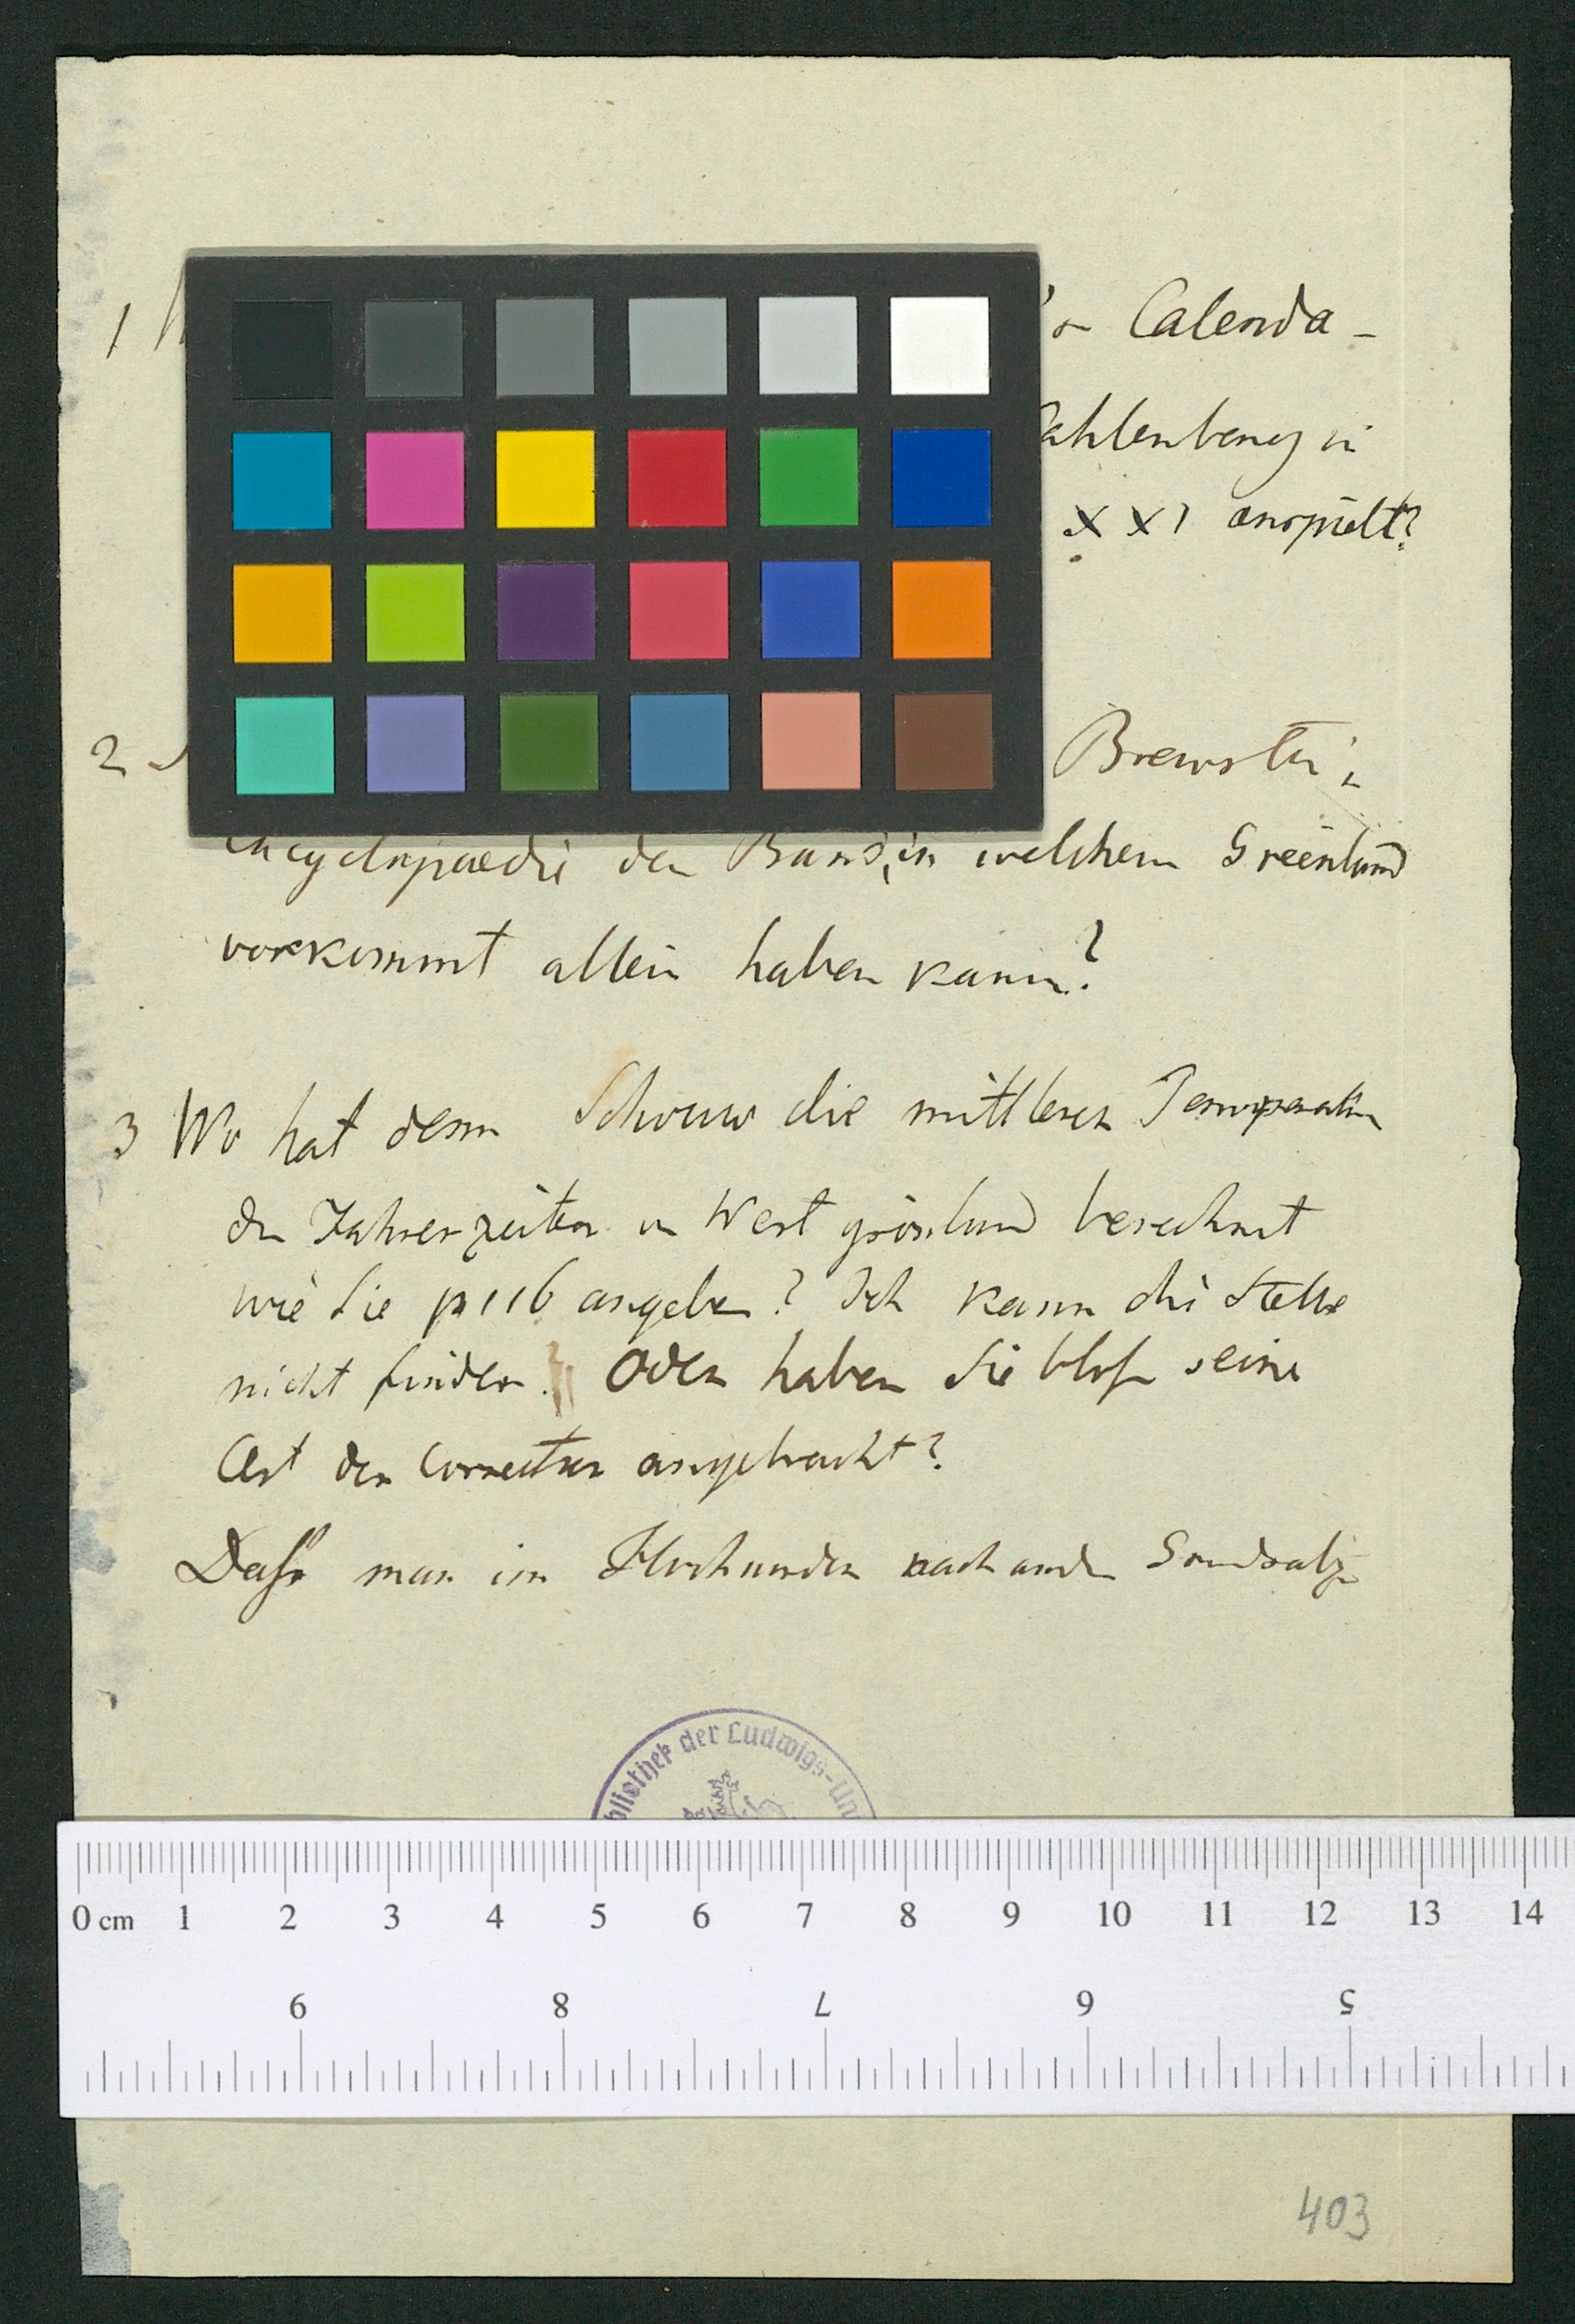 1 Calenda-
ahlenberg in
XXI anspielt?
2 Brewster's
Encyclopaedie den Band, in welchem Greenland
vorkommt allein haben kann?
3 Wo hat denn Schouw die mittleren Temperaturen
der Jahreszeiten in Westgrönland berechnet
wie Sie p 116 angeben? Ich kann die Stelle
nicht finden. Oder haben Sie bloß seine
Art der Correction angebracht?
Daß man im Hochnorden nach and
bliothek der Ludwigs-Un
0 cm 1 2 3 4 5 6 7 8 9 10 11 12 13 14
9 8 7 6 5
403